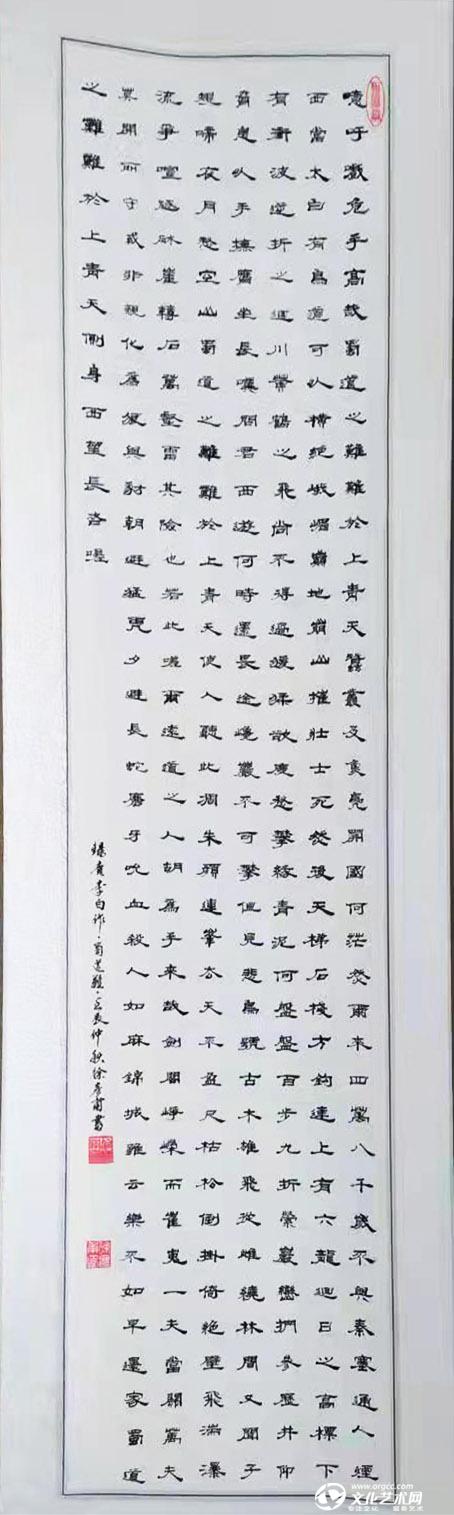 噫吁戲危乎高哉蜀道之難難於上青天蠶叢及魚鳧開國何茫然爾來四萬八千歲不與秦塞通人煙
西當太白有鳥道可以橫絕峨嵋巔地崩山摧壯士死然後天梯石棧方鉤連上有六龍迴日之高標下
有衝波逆折之迴川黃鶴之飛尚不得過猿猱欲度愁攀緣青泥何盤盤百步九折縈巖巒捫參歷井仰
脅息以手撫膺坐長嘆問君西遊何時還畏途巉巖不可攀但見悲鳥號古木雄飛從雌繞林間又聞子
規啼夜月愁空山蜀道之難難於上青天使人聽此凋朱顏連峯去天不盈尺枯松倒掛倚絕壁飛湍瀑
流爭喧豗砯崖轉石萬壑雷其險也若此嗟爾遠道之人胡為乎來哉劍閣崢嶸而崔嵬一夫當關萬夫
莫開所守或非親化為狼與豺朝避猛虎夕避長蛇磨牙吮血殺人如麻錦城雖云樂不如早還家蜀道
之難難於上青天側身西望長咨嗟
李白作·蜀道難·仲秋徐書
www.orgcc.com
文化艺术网